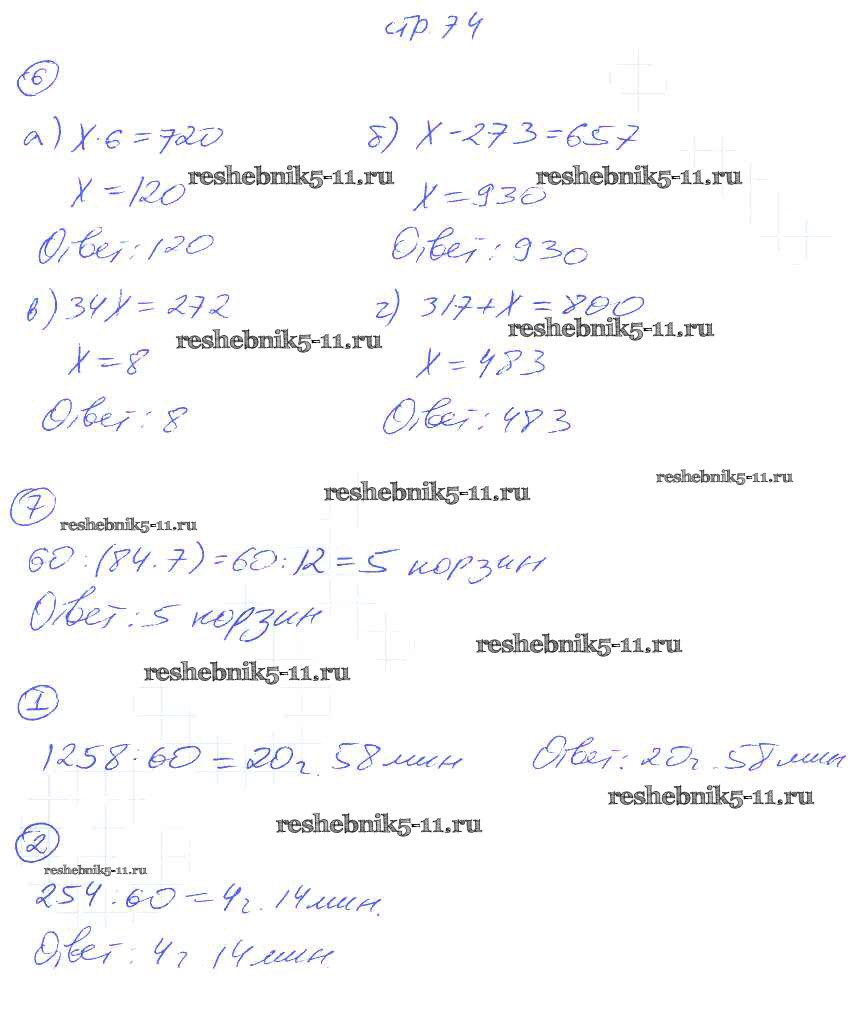 стр 74
6
а) X·6=720 б) X-273=657
X=120 reshebnik5-11.ru X=930 reshebnik5-11.ru
Ответ: 120 Ответ: 930
в) 34X=272 г) 317+X=800
reshebnik5-11.ru reshebnik5-11.ru
X=8 X=483
Ответ: 8 Ответ: 483
reshebnik5-11.ru reshebnik5-11.ru
7
reshebnik5-11.ru
60:(84.7)=60:12=5 корзин
Ответ: 5 корзин
reshebnik5-11.ru
reshebnik5-11.ru
1
1258:60=20г. 58мин Ответ: 20г. 58мин
reshebnik5-11.ru
reshebnik5-11.ru
2
reshebnik5-11.ru
254:60=4г. 14мин.
Ответ: 4г 14мин